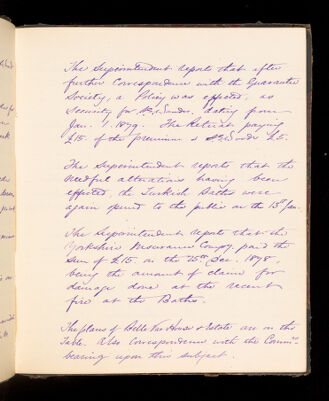 The Superintendent reports that after
further Correspondence with the Guarantee
Society, a Policy was effected, as
Security for Mr. Sander. dating from
Jan. 1. 1879. The Retreat paying
£15 of the premium & Mr. Sander £5.
The Superintendent reports that the
needful alterations having been
effected, the Turkish Baths were
again opened to the public on the 13th Jan.
The Superintendent reports that the
Yorkshire Insurance Compy. paid the
Sum of £15 on the 25th Dec. 1878.
being the amount of claim for
damage done at the recent
fire at the Baths.
The plans of Belle Vue House & Estate are on the
Table. Also Correspondence with the
bearing upon this subject.